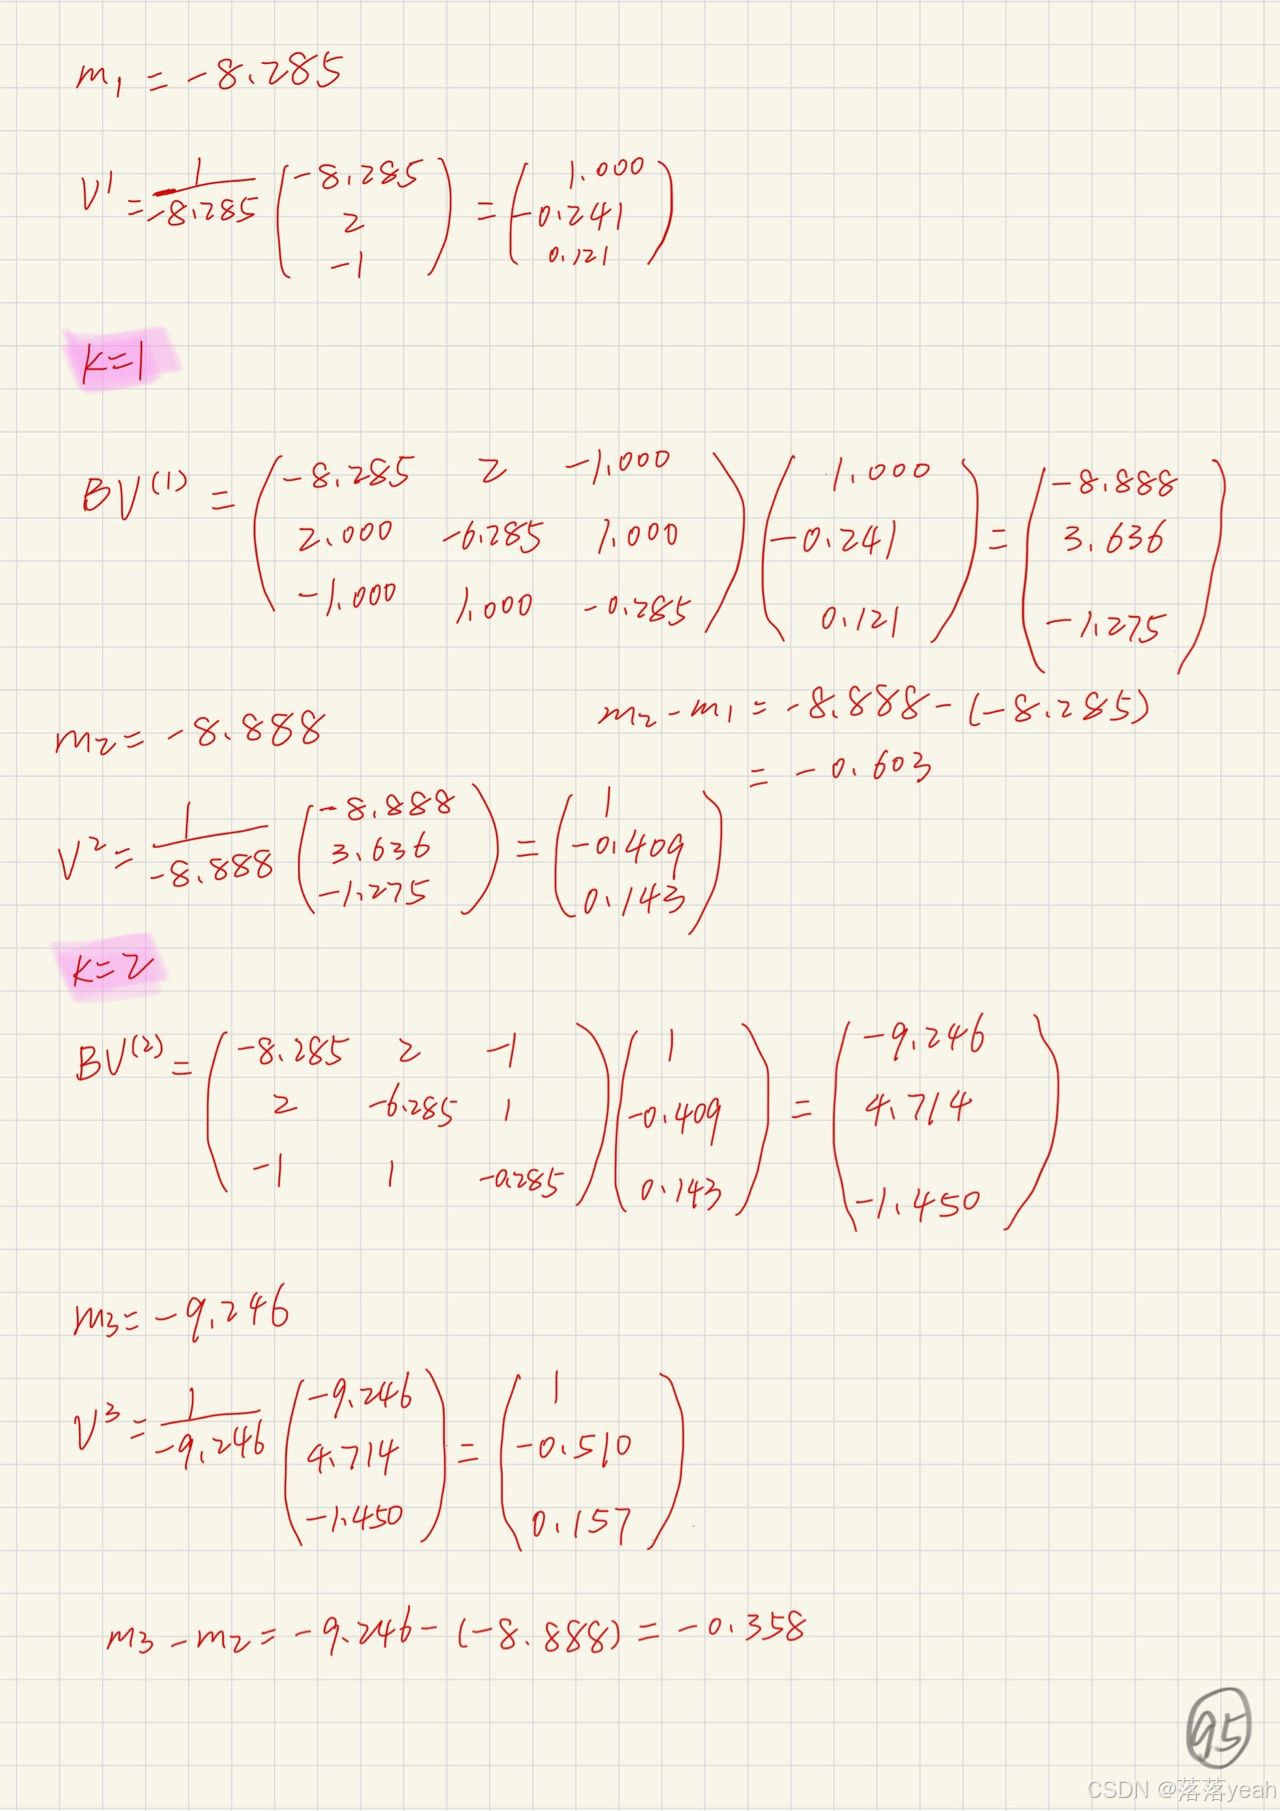 m₁ = -8.285
V¹ = 1/-8.285 (-8.285 2 -1) = (1.000 -0.241 0.121)
k=1
BV⁽¹⁾ = (-8.285 2 -1.000 2.000 -6.285 1.000 -1.000 1.000 -0.285) (1.000 -0.241 0.121) = (-8.888 3.636 -1.275)
m₂ = -8.888
m₂ - m₁ = -8.888 - (-8.285)
= -0.603
V² = 1/-8.888 (-8.888 3.636 -1.275) = (1 -0.409 0.143)
k=2
BV⁽²⁾ = (-8.285 2 -1 2 -6.285 1 -1 1 -0.285) (1 -0.409 0.143) = (-9.246 4.714 -1.450)
m₃ = -9.246
V³ = 1/-9.246 (-9.246 4.714 -1.450) = (1 -0.510 0.157)
m₃ - m₂ = -9.246 - (-8.888) = -0.358
95
CSDN @落落yeah